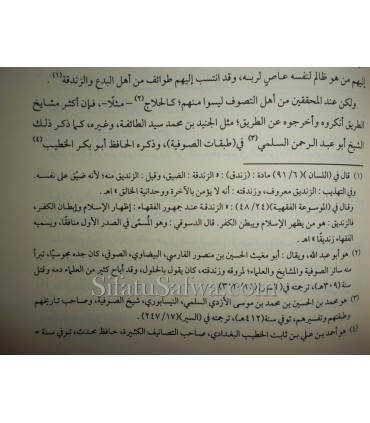 إليهم من هو ظالم لنفسه عاصٍ لربه، وقد انتسب إليهم طوائف من أهل البدع والزندقة(١).
ولكن عند المحققين من أهل التصوف ليسوا منهم؛ كالحلاج(٢) -مثلًا-، فإن أكثر مشايخ
الطريق أنكروه وأخرجوه عن الطريق؛ مثل الجنيد بن محمد سيد الطائفة، وغيره، كما ذكر ذلك
الشيخ أبو عبد الرحمن السلمي(٣) في «طبقات الصوفية»، وذكره الحافظ أبو بكر الخطيب(٤)
(١) قال في «اللسان» (٩١/٦) مادة: (زندق): «الزندقة: الضيق، وقيل: الزنديق منه؛ لأنه ضيّق على نفسه.
وفي التهذيب: الزنديق معروف، وزندقته: أنه لا يؤمن بالآخرة ووحدانية الخالق» اهـ.
وقال في «الموسوعة الفقهية» (٤٨/٢٤): «الزندقة عند جمهور الفقهاء: إظهار الإسلام وإبطان الكفر،
فالزنديق: هو من يظهر الإسلام ويبطن الكفر. قال الدسوقي: وهو المُسمّى في الصدر الأول منافقًا، ويسميه
الفقهاء زنديقًا» اهـ.
(٢) هو أبو عبد الله، ويقال: أبو مغيث الحسين بن منصور الفارسي، البيضاوي، الصوفي، كان جده مجوسيًا، تبرأ
منه سائر الصوفية والمشايخ والعلماء؛ لمروقه وزندقته، كان يقول بالحلول، وقد أباح كثير من العلماء دمه وقتل
سنة (٣٠٩هـ)، ترجمته في
(٣) هو محمد بن الحسين بن محمد بن موسى الأزدي السلمي، النيسابوري، شيخ الصوفية، وصاحب تاريخهم
وطبقتهم وتفسيرهم، توفي سنة (٤١٢هـ)، ترجمته في «السير» (٢٤٧/١٧).
(٤) هو أحمد بن علي بن ثابت الخطيب البغدادي، صاحب التصانيف الكثيرة، حافظ محدث، توفي سنة =
SifatuSafwa.com